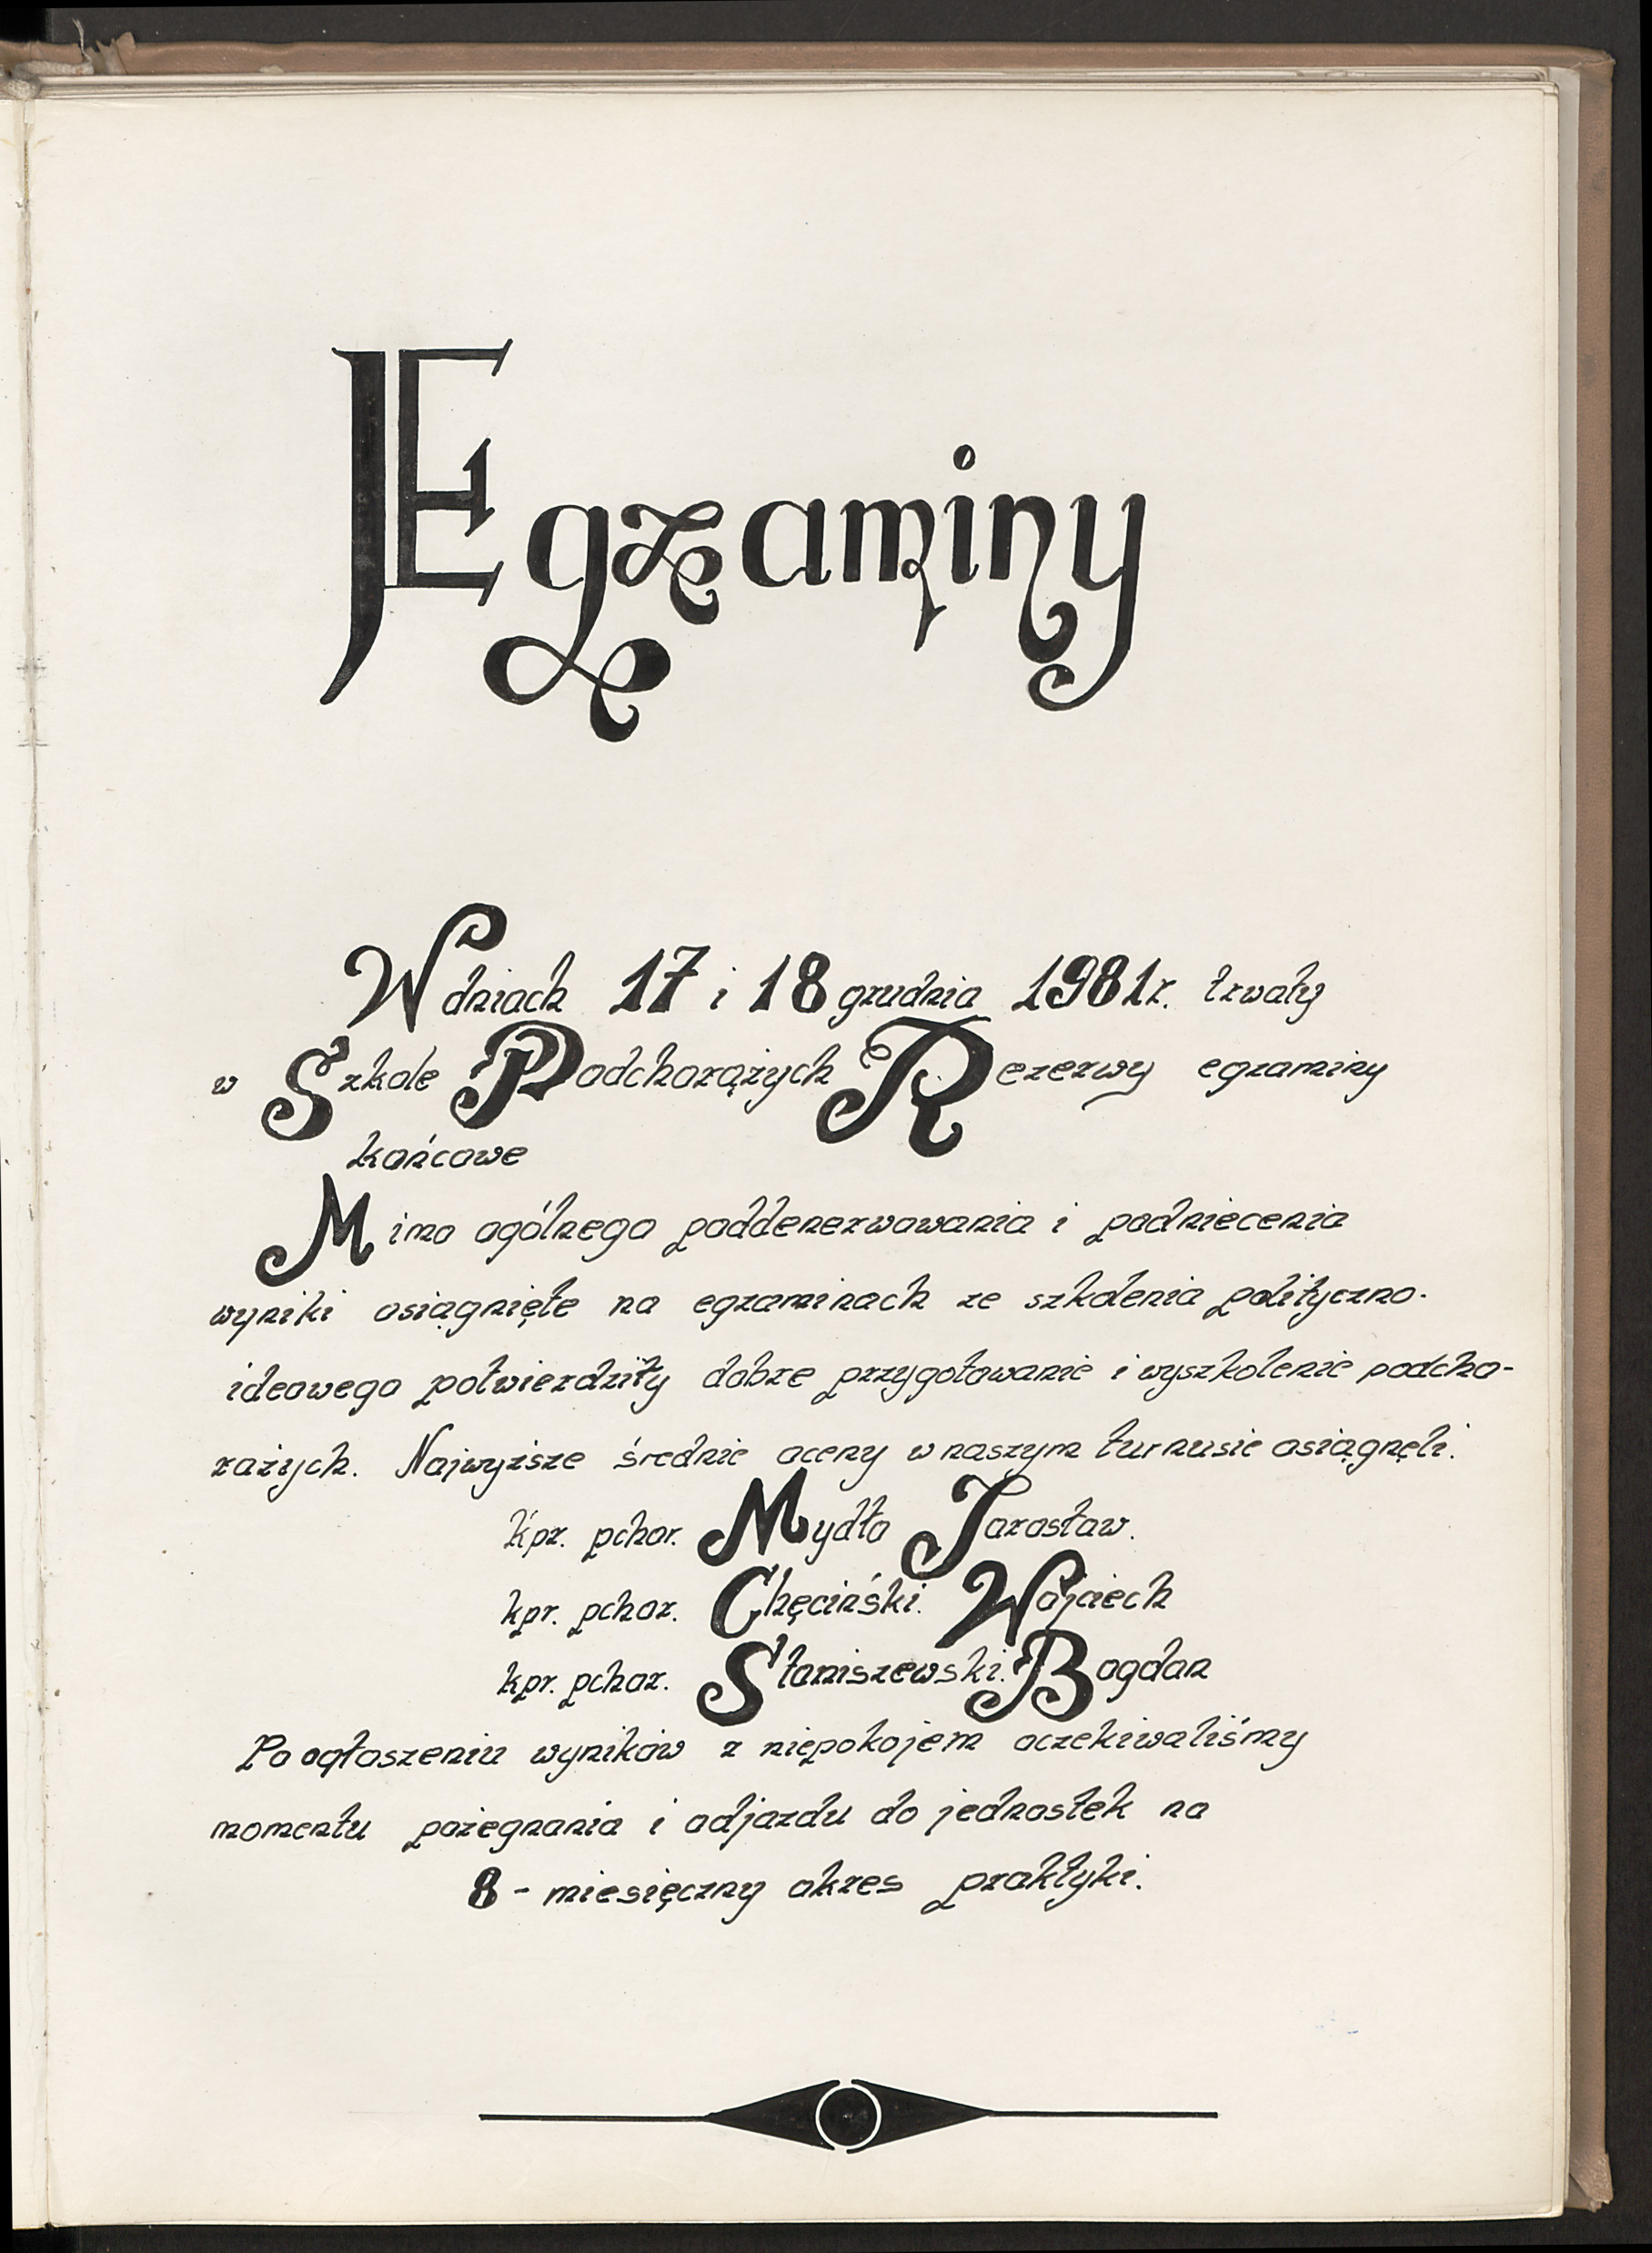 Egzaminy
W dniach 17 i 18 grudnia 1981r. trwały
w Szkole Podchorążych Rezerwy egzaminy
końcowe
Mimo ogólnego poddenerwowania i podniecenia
wyniki osiągnięte na egzaminach ze szkolenia polityczno-
ideowego potwierdziły dobre przygotowanie i wyszkolenie podcho-
rążych. Najwyższe średnie oceny w naszym turnusie osiągnęli.
kpr. pchor. Mydło Jarosław.
kpr. pchor. Chęciński. Wojciech
kpr. pchor. Staniszewski. Bogdan
Po ogłoszeniu wyników z niepokojem oczekiwaliśmy
momentu pożegnania i odjazdu do jednostek na
8 - miesięczny okres praktyki.